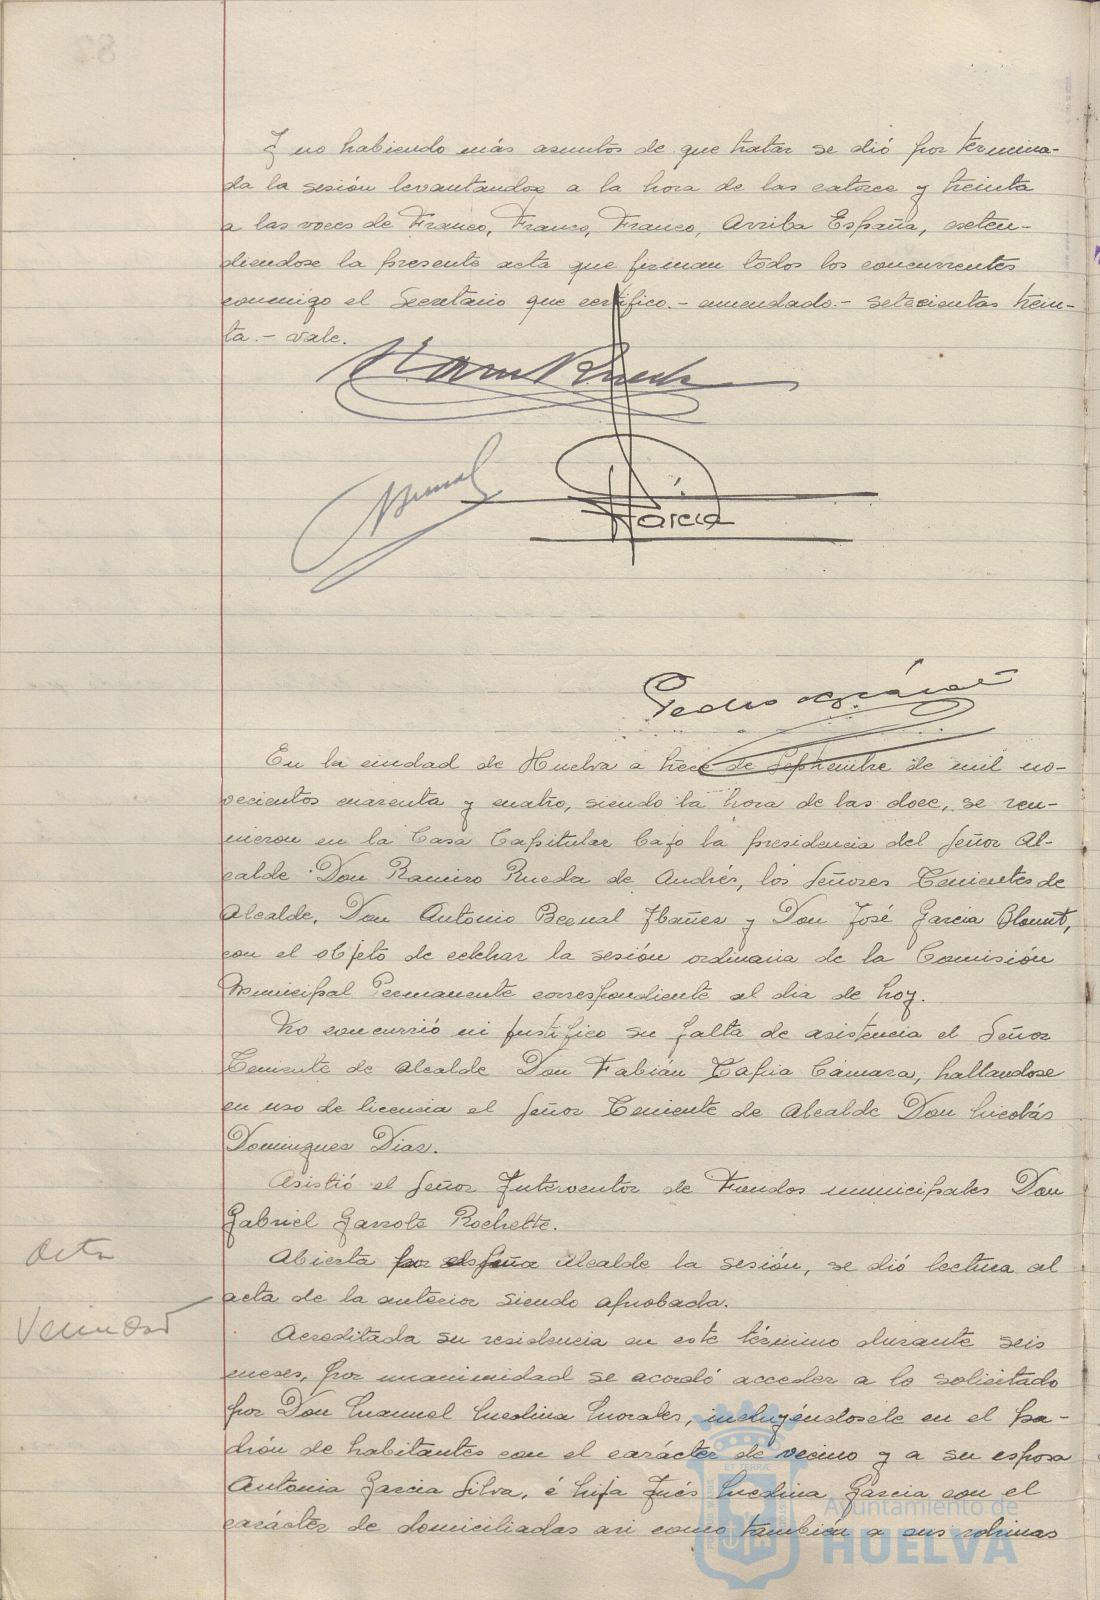 Y no habiendo más asuntos de que tratar se dió por termina-
da la sesión levantandose a la hora de las catorce y treinta
a las voces de Franco, Franco, Franco, Arriba España, exten-
diendose la presente acta que firman todos los concurrentes
conmigo el Secretario que certifico.- enmendado.- setecientas trein-
ta.- vale.
Ram Rueda
Bernal
García
Pedro
En la ciudad de Huelva a trece de Septiembre de mil no-
vecientos cuarenta y cuatro, siendo la hora de las doce, se reu-
nieron en la Casa Capitular bajo la presidencia del Señor Al-
calde Don Ramiro Rueda de Andrés, los Señores Tenientes de
Alcalde, Don Antonio Bernal Ibañez y Don José Garcia Blount,
con el objeto de celebrar la sesión ordinaria de la Comisión
Municipal Permanente correspondiente al dia de hoy.
No concurrió ni justifico su falta de asistencia el Señor
Teniente de Alcalde Don Fabián Tapia Cámara, hallandose
en uso de licencia el Señor Teniente de Alcalde Don Nicolás
Dominguez Diaz.
Asistió el Señor Interventor de Fondos municipales Don
Gabriel Garrote Rochette.
Acta
Abierta por el Señor Alcalde la sesión, se dió lectura al
acta de la anterior siendo aprobada.
Vecindad
Acreditada su residencia en este término durante seis
meses, por unanimidad se acordó acceder a lo solicitado
por Don Manuel Medina Morales, incluyéndosele en el pa-
drón de habitantes con el carácter de vecino y a su esposa
Antonia Garcia Silva, é hija Inés Medina Garcia con el
carácter de domiciliadas asi como también a sus sobrinas
Ayuntamiento de
HUELVA